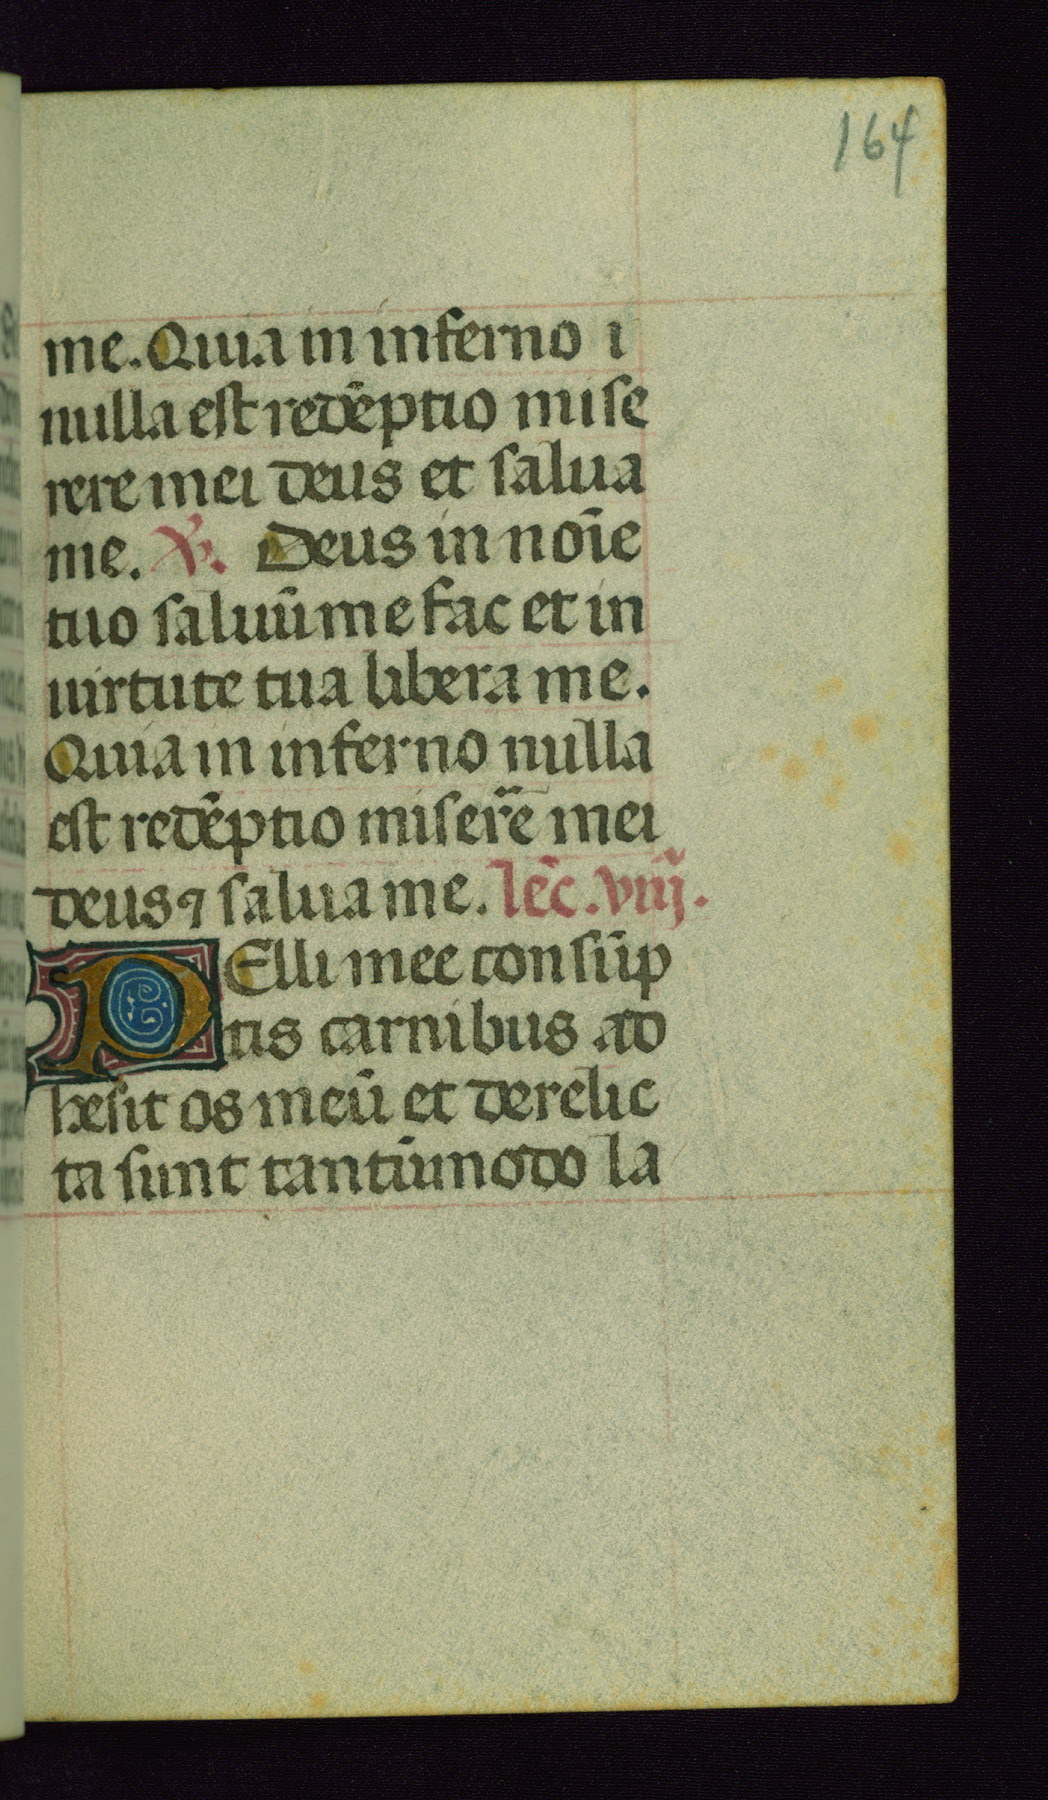 164
me. Quia in inferno i
nulla est redēptio mise
rere mei deus et salua
me. ℣. Deus in noīe
tuo saluū me fac et in
uirtute tua libera me.
Quia in inferno nulla
est redēptio miserē mei
deus ⁊ salua me. lēc. viiij.
PElli mee consūp
tis carnibus ad
hesit os meū et derelic
ta sunt tantūmodo la